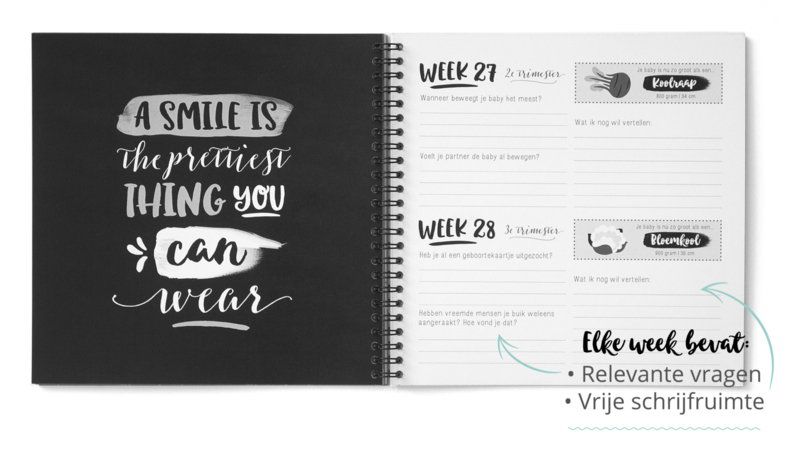 A SMILE IS
the prettiest
THING YOU
can
wear
WEEK 27 2e trimester
Wanneer beweegt je baby het meest?
Voelt je partner de baby al bewegen?
Je baby is nu zo groot als een...
Koolraap
800 gram | 34 cm
Wat ik nog wil vertellen:
WEEK 28 3e trimester
Heb je al een geboortekaartje uitgezocht?
Hebben vreemde mensen je buik weleens
aangeraakt? Hoe vond je dat?
Je baby is nu zo groot als een...
Bloemkool
900 gram | 35 cm
Wat ik nog wil vertellen:
Elke week bevat:
• Relevante vragen
• Vrije schrijfruimte